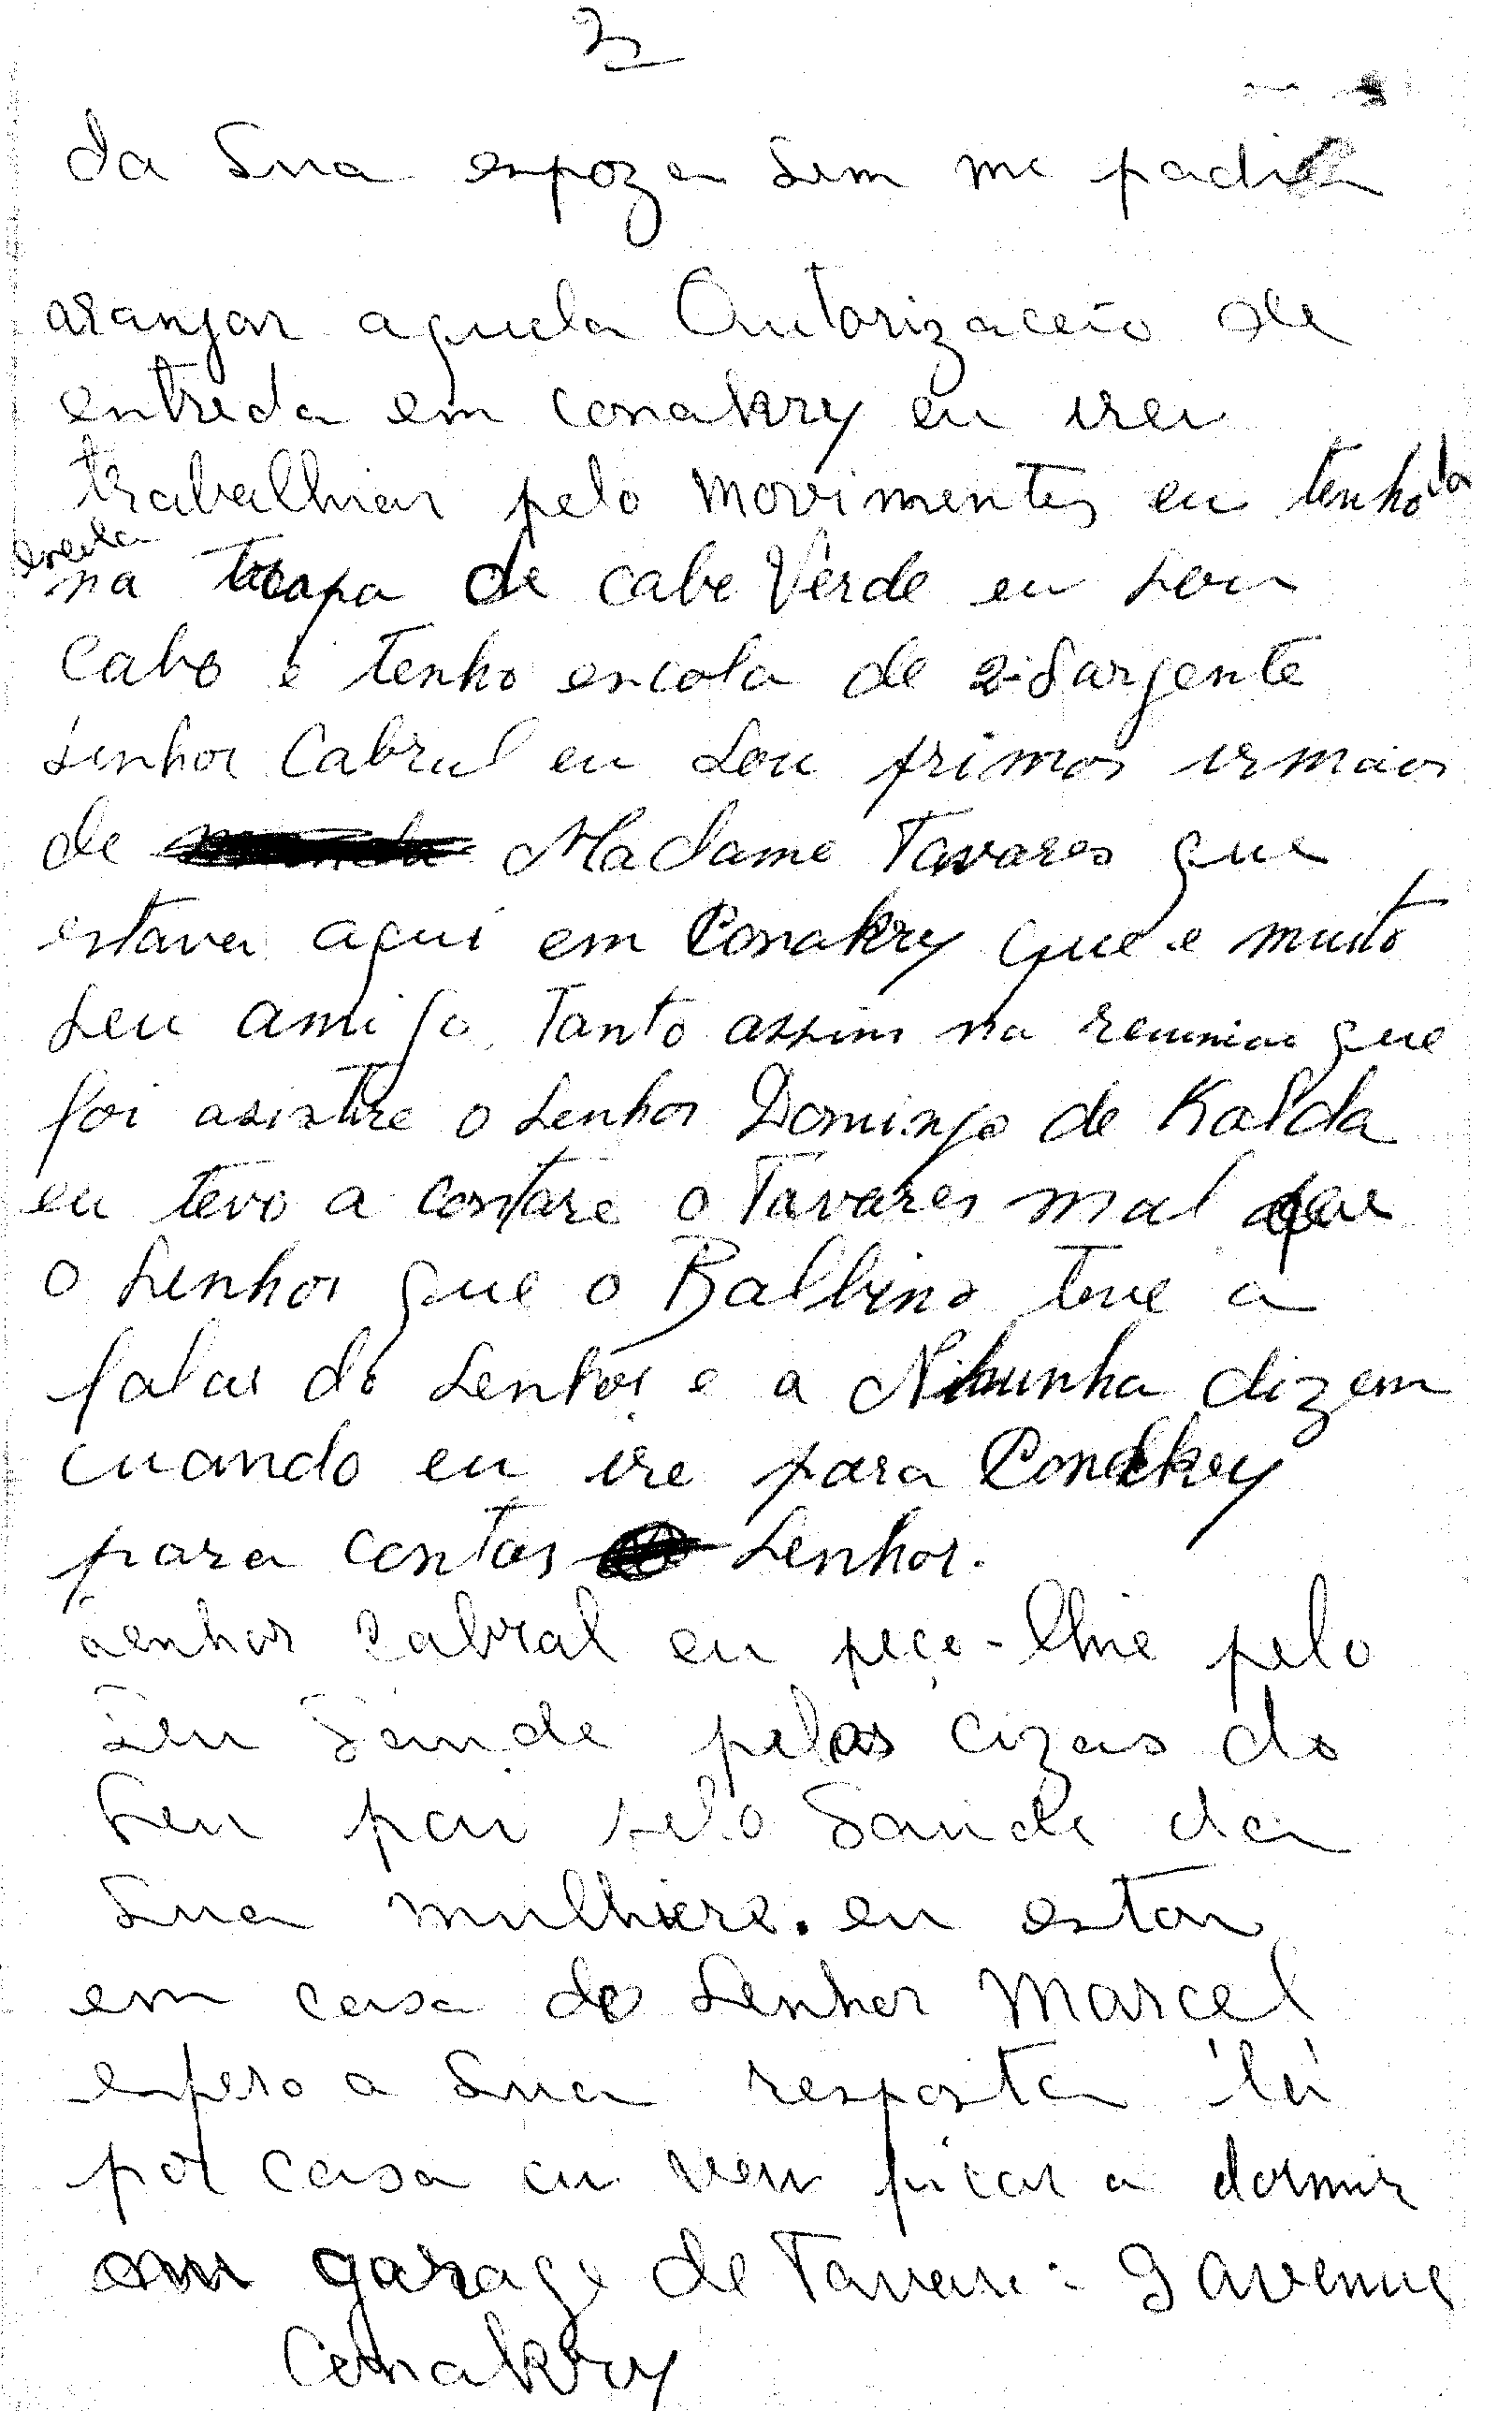 da Sua espoza Sem me padia
aranjar aquela Autorizacão de
entreda em conakry eu irei
trabalhar pelo movimentos eu tenho
na tropa de cabe Verde eu sou
Cabo e tenho escola de 2º Sargente
Senhor Cabral eu sou primos irmãos
de Madame Tavares que
estava aqui em Conakry que e muito
seu amigo. Tanto assim na reuniao que
foi asistire o senhor Domingo de Kalda
eu tevo a contare o Tavares mal que
o senhor que o Balbino teve a
falar do senhor e a dizem
cuando eu ire para Conakry
para contar Senhor.
Senhor Cabral eu peço-lhie pelo
Seu Saude pelas cizas do
Seu pai pelo Saude da
Sua mulhiere. eu estou
em casa do Senhor Marcel
espero a Sua resposta lá
por casa eu veu ficar a dormir
em garage de Tavare: 9 avenue
Conakry